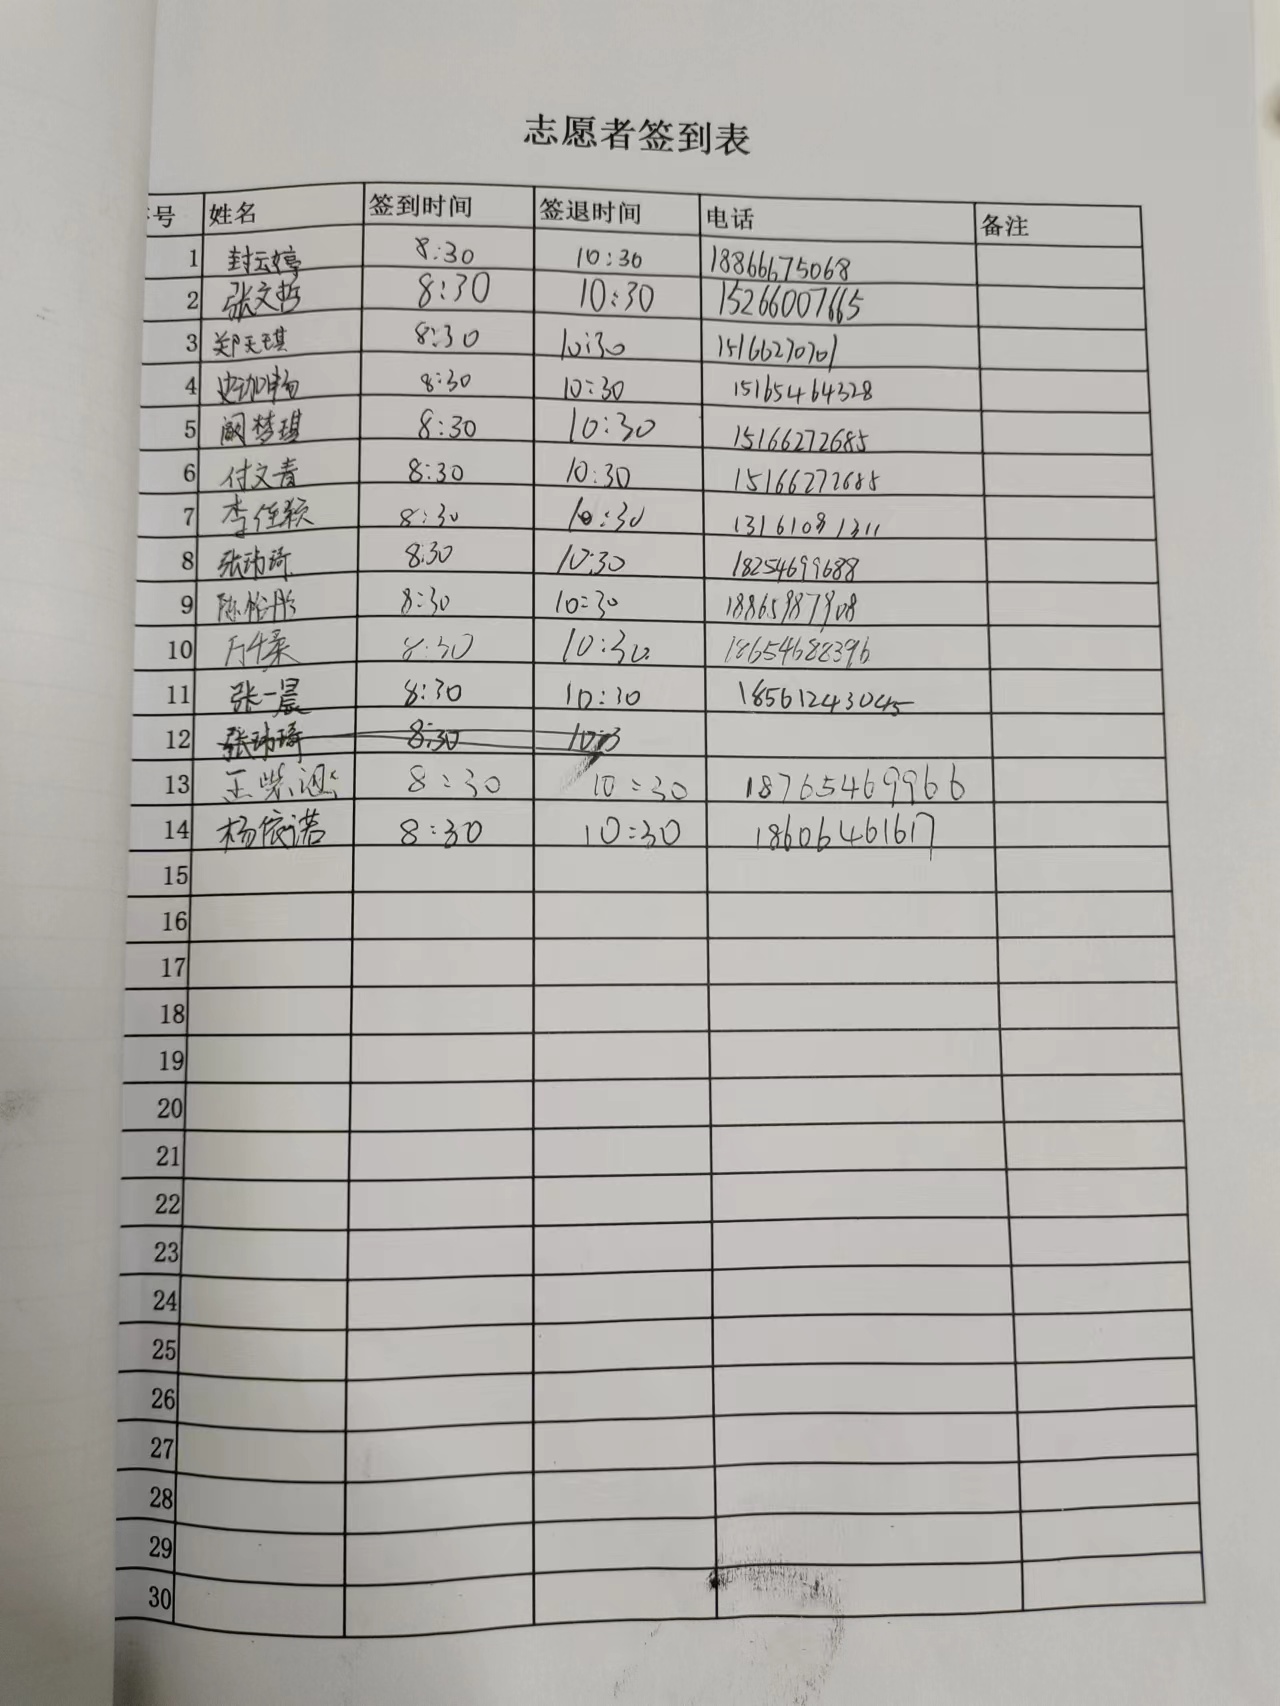 志愿者签到表
号 姓名 签到时间 签退时间 电话 备注
1 封云婷 8:30 10:30 18866675068
2 张文哲 8:30 10:30 15266007665
3 郑天琪 8:30 10:30
4 8:30 10:30 15165464328
5 阚梦琪 8:30 10:30 15166272685
6 付文青 8:30 10:30 15166272685
7 李佳颖 8:30 10:30 13161081311
8 张玮琦 8:30 10:30 18254699688
9 8:30 10:30 18865987908
10 8:30 10:30 18654688396
11 张一晨 8:30 10:30 18561243045
12 张玮琦 8:30 10:3
13 8:30 10:30 18765469966
14 杨依诺 8:30 10:30 18606461617
15
16
17
18
19
20
21
22
23
24
25
26
27
28
29
30